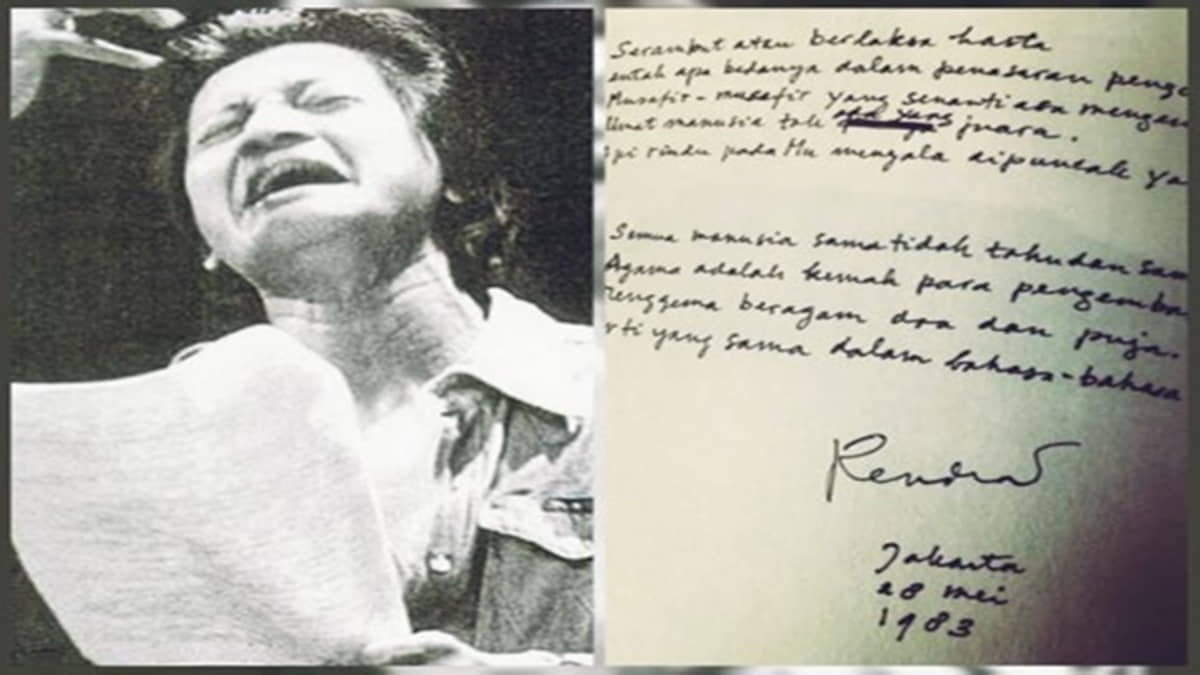 Serambut atau berlaksa hasta
entah apa bedanya dalam penasaran penge
Musafir-musafir yang senantiasa mengem
limat manusia tak ada yang juara.
api rindu pada Mu menyala dipuncak ya
Semua manusia sama tidak tahu dan sam
Agama adalah kemah para pengemba
Menggema beragam doa dan puja.
rti yang sama dalam bahasa-bahasa
Rendra
Jakarta
28 mei
1983